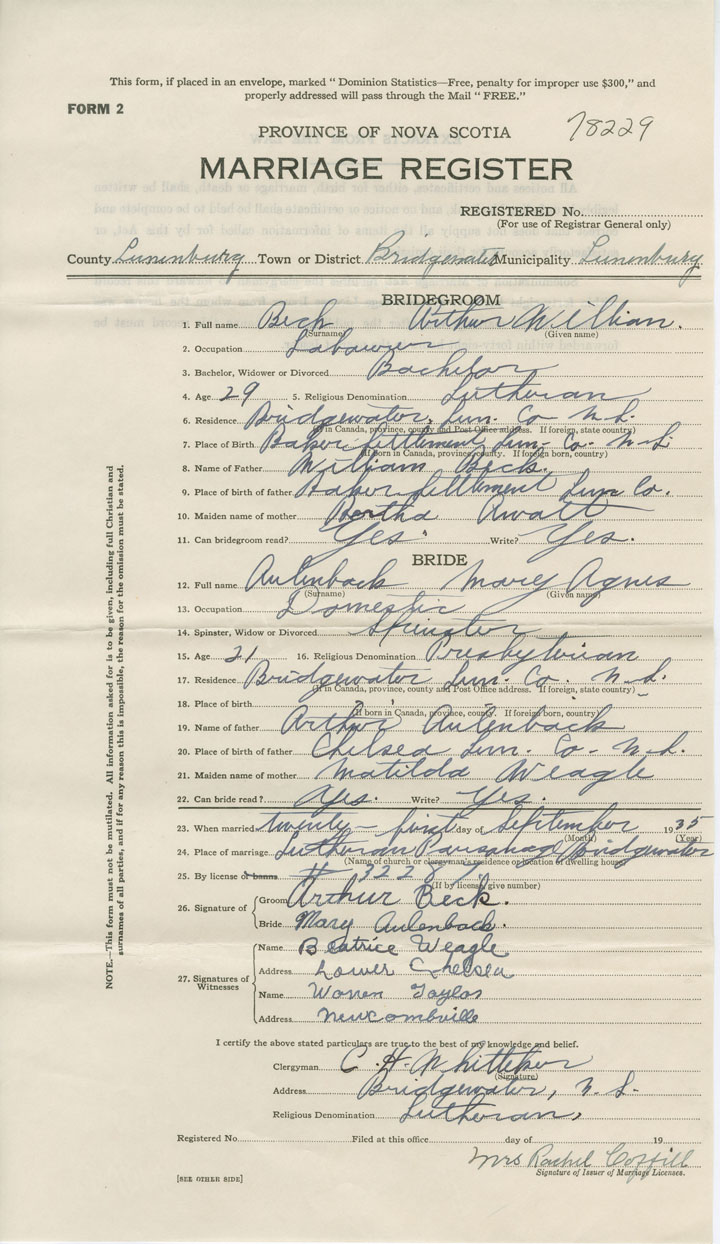 This form, if placed in an envelope, marked “ Dominion Statistics—Free, penalty for improper use $300,” and
properly addressed will pass through the Mail “ FREE.”
FORM 2
78229
PROVINCE OF NOVA SCOTIA
MARRIAGE REGISTER
REGISTERED No.
(For use of Registrar General only)
County Lunenburg Town or District Bridgewater Municipality Lunenburg
BRIDEGROOM
1. Full name Beck Arthur William.
(Surname) (Given name)
2. Occupation Labourer
3. Bachelor, Widower or Divorced Bachelor
4. Age 29 5. Religious Denomination Lutheran
6. Residence Bridgewater, Lun. Co N.S.
(If in Canada, province, county and Post Office address. If foreign, state country)
7. Place of Birth Baker Settlement Lun. Co. N.S.
(If born in Canada, province, county. If foreign born, country)
8. Name of Father William Beck.
9. Place of birth of father Baker Settlement Lun Co.
10. Maiden name of mother Bertha Awalt
11. Can bridegroom read? Yes. Write? Yes.
BRIDE
12. Full name Aulenback Mary Agnes
(Surname) (Given name)
13. Occupation Domestic
14. Spinster, Widow or Divorced Spinster
15. Age 21 16. Religious Denomination Presbyterian
17. Residence Bridgewater Lun. Co. N.S.
(If in Canada, province, county and Post Office address. If foreign, state country)
18. Place of birth " " "
(If born in Canada, province, county. If foreign born, country)
19. Name of father Arthur Aulenback
20. Place of birth of father Chelsea Lun. Co. N.S.
21. Maiden name of mother Matilda Weagle
22. Can bride read? Yes. Write? Yes.
23. When married twenty-first day of September 1935
(Month) (Year)
24. Place of marriage Lutheran Parsonage, Bridgewater
(Name of church or clergyman's residence or location of dwelling house)
25. By license or banns # 32287
(If by license, give number)
26. Signature of Groom Arthur Beck.
Bride Mary Aulenback.
27. Signatures of Witnesses
Name Beatrice Weagle
Address Lower Chelsea
Name Warren Taylor
Address Newcombville
NOTE.—This form must not be mutilated. All information asked for is to be given, including full Christian and
surnames of all parties, and if for any reason this is impossible, the reason for the omission must be stated.
I certify the above stated particulars are true to the best of my knowledge and belief.
Clergyman C. H. Whitteker
(Signature)
Address Bridgewater, N.S.
Religious Denomination Lutheran,
Registered No. Filed at this office day of 19
Mrs Rachel Coffill
Signature of Issuer of Marriage Licenses.
[SEE OTHER SIDE]